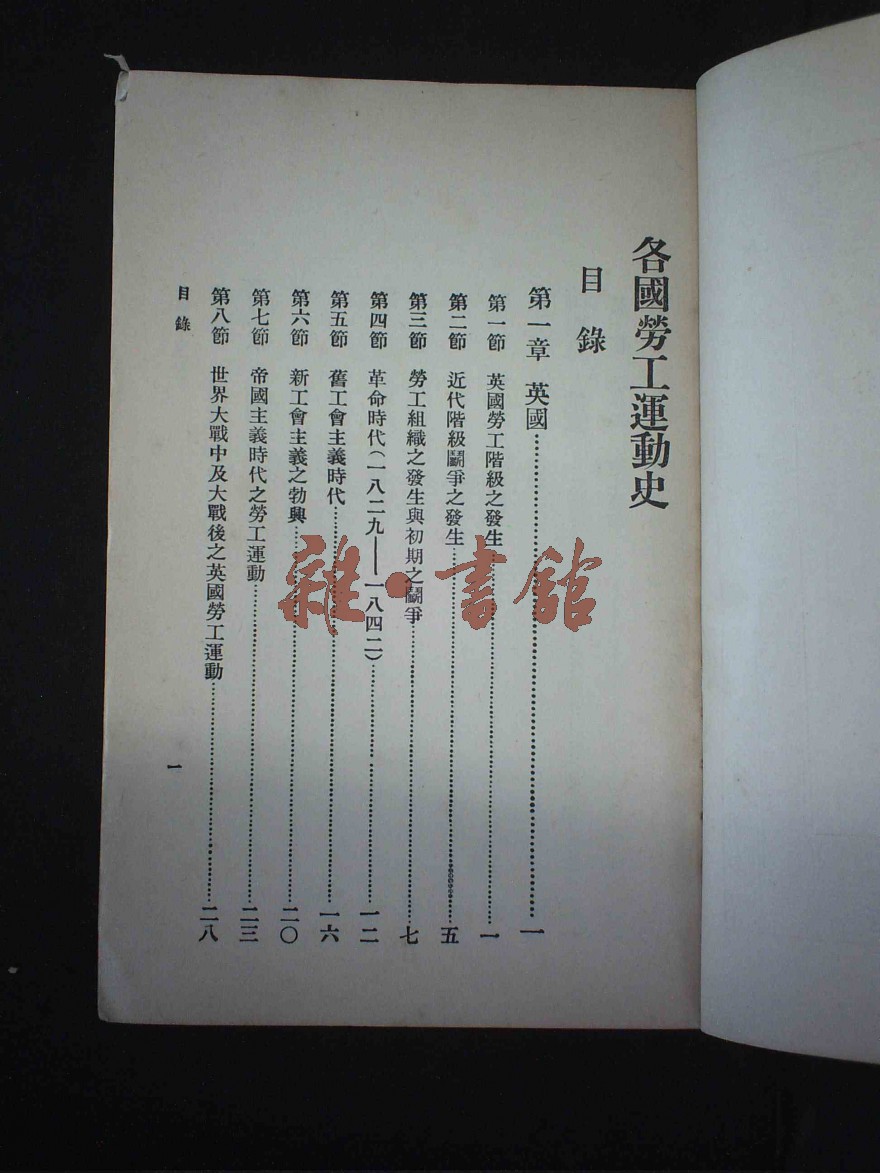 各國勞工運動史
目錄
第一章 英國……一
第一節 英國勞工階級之發生……一
第二節 近代階級鬭爭之發生……五
第三節 勞工組織之發生與初期之鬭爭……七
第四節 革命時代（一八二九——一八四二）……一二
第五節 舊工會主義時代……一六
第六節 新工會主義之勃興……二〇
第七節 帝國主義時代之勞工運動……二三
第八節 世界大戰中及大戰後之英國勞工運動……二八
目錄
一
雜·書館